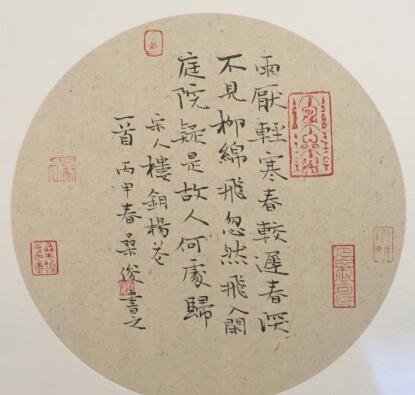 雨厭輕寒春較遲春深
不見柳綿飛忽然飛入閑
庭院疑是故人何處歸
宋人樓鈅楊花
一首 丙申春桑俊書之